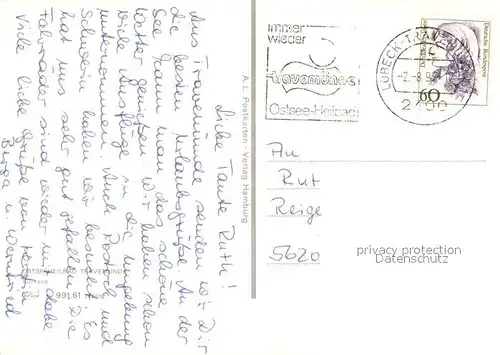 Liebe Tante Ruth!
Aus Travemünde senden wir Dir
die besten Urlaubsgrüße. An der
See kann man das schöne
Wetter genießen. Wir haben schon
viele Ausflüge in die Umgebung
unternommen. Auch Rostock und
Schwerin haben wir besucht. Es
hat uns sehr gut gefallen. Die
Fahrräder sind wieder mit dabei.
Viele liebe Grüße von
u.
A. L. Postkarten - Verlag Hamburg
OSTSEEHEILBAD TRAVEMÜNDE
991.61
Immer
wieder
travemünde
Ostsee-Heilbad
LÜBECK-TRAVEMÜNDE
2400
Deutsche Bundespost
60
An
Rut
Reige
5620
privacy protection
Datenschutz